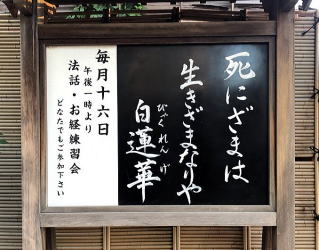 死にざまは
生きざまなりや
白蓮華
びゃくれんげ
毎月十六日
午後一時より
法話・お経練習会
どなたでもご参加下さい